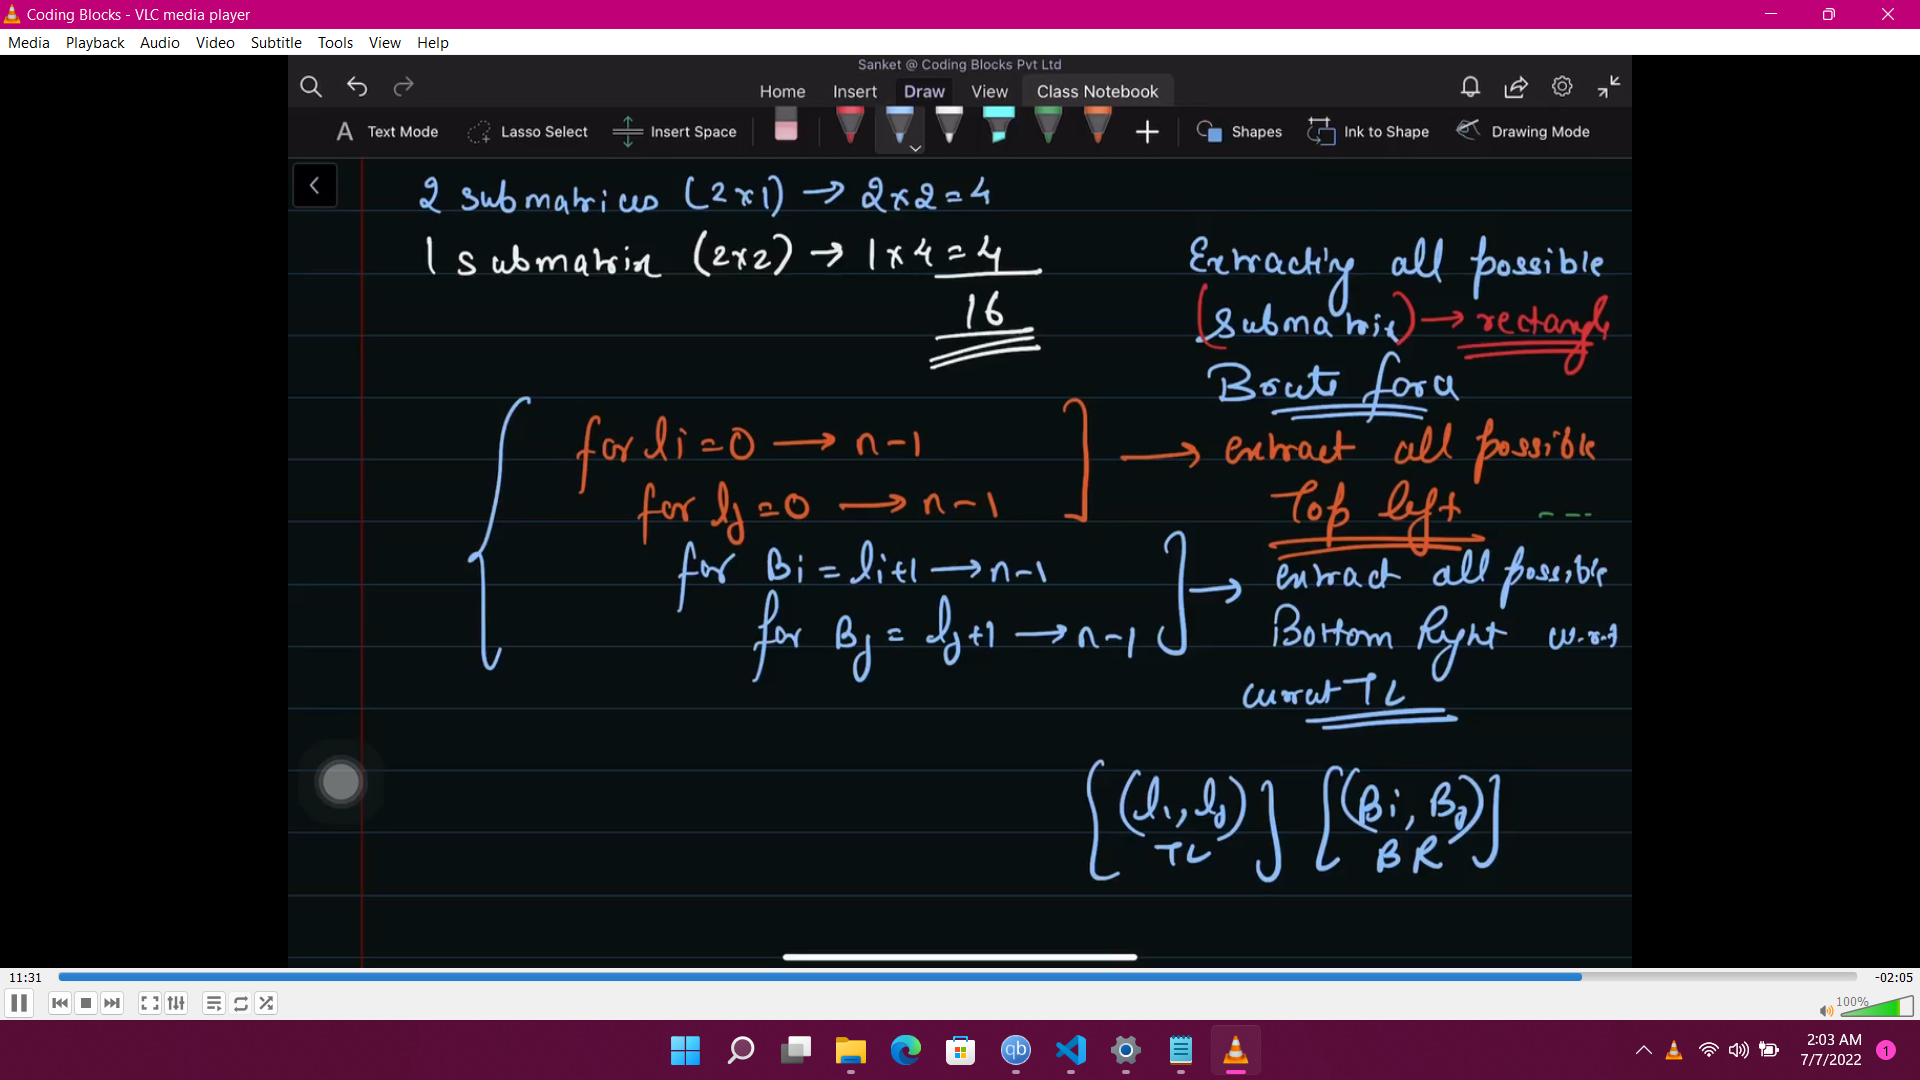 Coding Blocks - VLC media player
Media Playback Audio Video Subtitle Tools View Help
Sanket @ Coding Blocks Pvt Ltd
Home Insert Draw View Class Notebook
Text Mode Lasso Select Insert Space Shapes Ink to Shape Drawing Mode
2 submatrices (2x1) → 2x2=4
1 submatrix (2x2) → 1x4=4
16
Extracting all possible
(submatrix) → rectangle
Brute force
for li=0 → n-1
for lj=0 → n-1
for Bi = li+1 → n-1
for Bj = lj+1 → n-1
→ extract all possible
Top left ---
→ extract all possible
Bottom Right w.r.t
current TL
[(li, lj) TL] [(Bi, Bj) BR]
11:31 -02:05
100%
qb
2:03 AM
7/7/2022
1